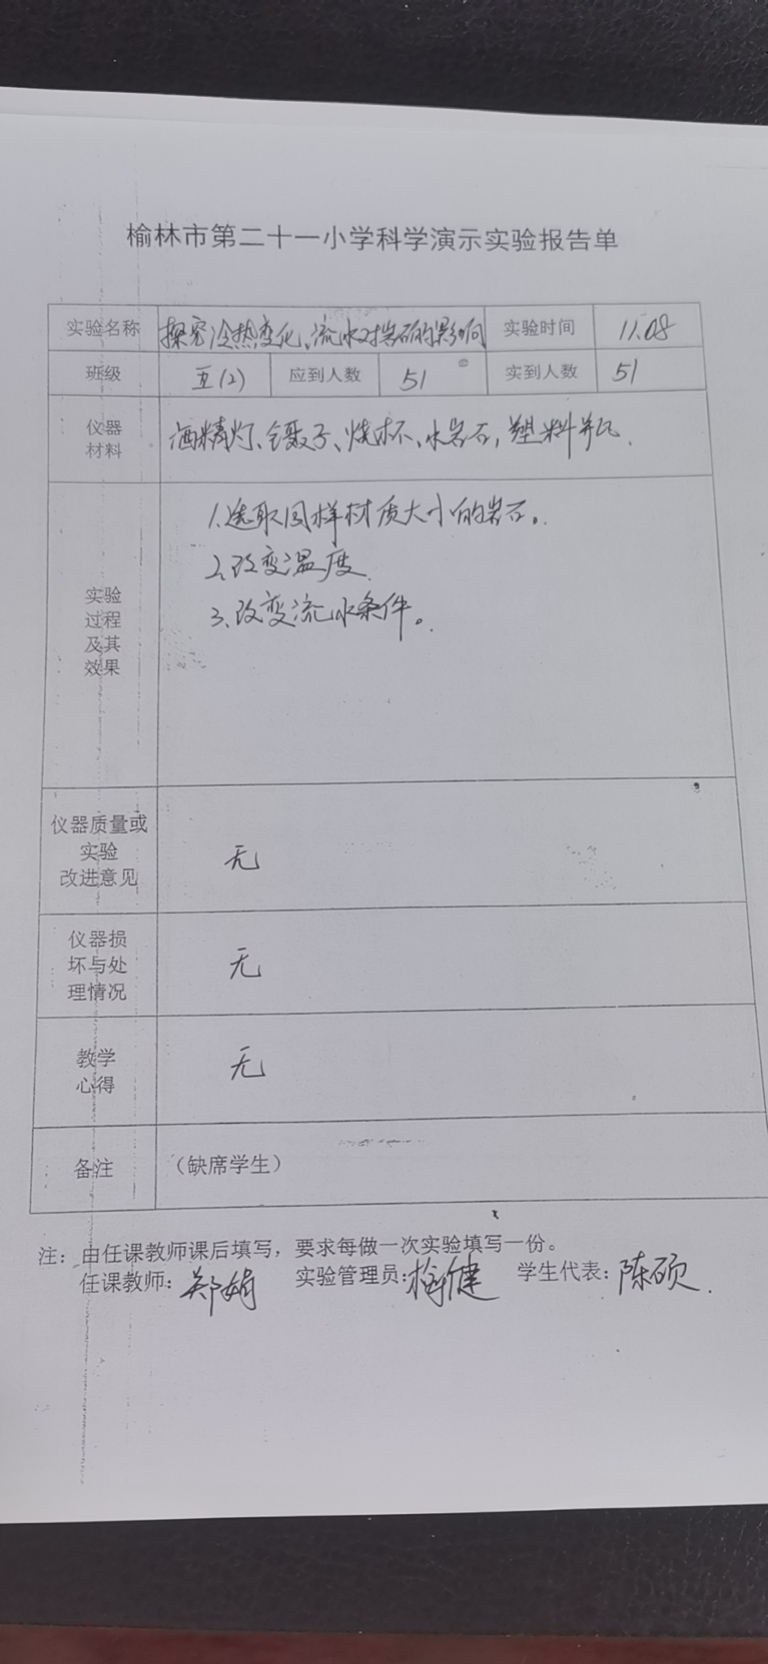 榆林市第二十一小学科学演示实验报告单
实验名称 探究冷热变化、流水对岩石的影响 实验时间 11.08
班级 五(2) 应到人数 51 实到人数 51
仪器
材料
酒精灯、镊子、烧杯、水岩石,塑料瓶.
实验
过程
及其
效果
1.选取同样材质大小的岩石.
2.改变温度.
3.改变流水条件。
仪器质量或
实验
改进意见
无
仪器损
坏与处
理情况
无
教学
心得
无
备注 (缺席学生)
注:由任课教师课后填写,要求每做一次实验填写一份。
任课教师:郑娟 实验管理员: 学生代表:陈硕.